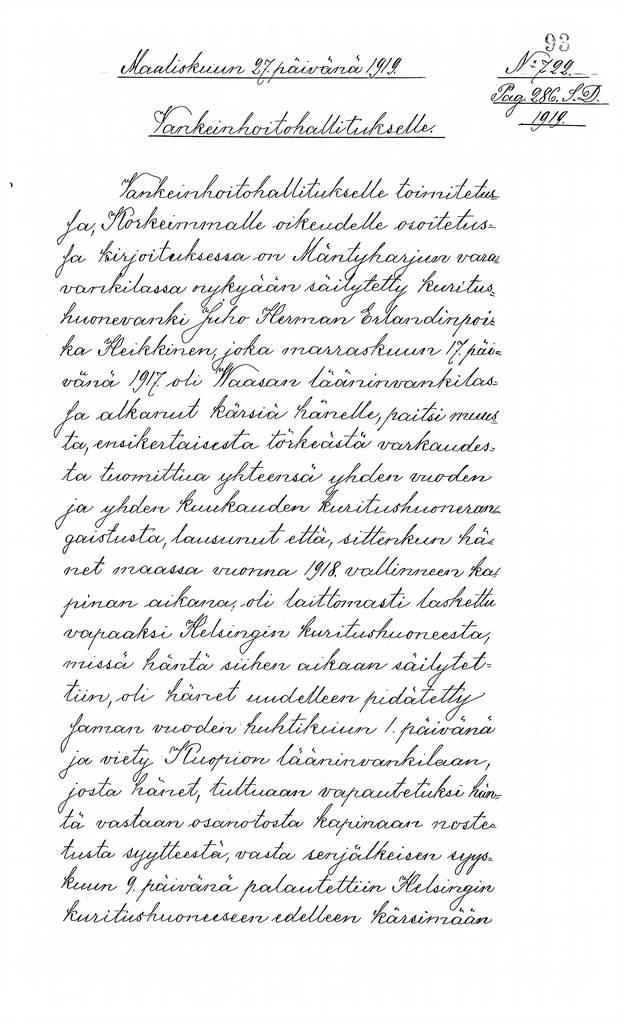 93
Maaliskuun 27. päivänä 1919.
No 722.
Pag. 286. S.D.
1919.
Vankeinhoitohallitukselle.
Vankeinhoitohallitukselle toimitetus=
sa, Korkeimmalle oikeudelle osoitetus=
sa kirjoituksessa on Mäntyharjun vara=
vankilassa nykyään säilytetty kuritus=
huonevanki Juho Herman Erlandinpoi=
ka Heikkinen, joka marraskuun 17. päi=
vänä 1917. oli Waasan lääninvankilas=
sa alkanut kärsiä hänelle, paitsi muus=
ta, ensikertaisesta törkeästä varkaudes=
ta tuomittua yhteensä yhden vuoden
ja yhden kuukauden kuritushuoneran=
gaistusta, lausunut että, sittenkun hä=
net maassa vuonna 1918. vallinneen ka=
pinan aikana, oli laittomasti laskettu
vapaaksi Helsingin kuritushuoneesta,
missä häntä siihen aikaan säilytet=
tiin, oli hänet uudelleen pidätetty
saman vuoden huhtikuun 1. päivänä
ja viety Kuopion lääninvankilaan,
josta hänet, tultuaan vapautetuksi hän=
tä vastaan osanotosta kapinaan noste=
tusta syytteestä, vasta senjälkeisen syys=
kuun 9. päivänä palautettiin Helsingin
kuritushuoneeseen edelleen kärsimään